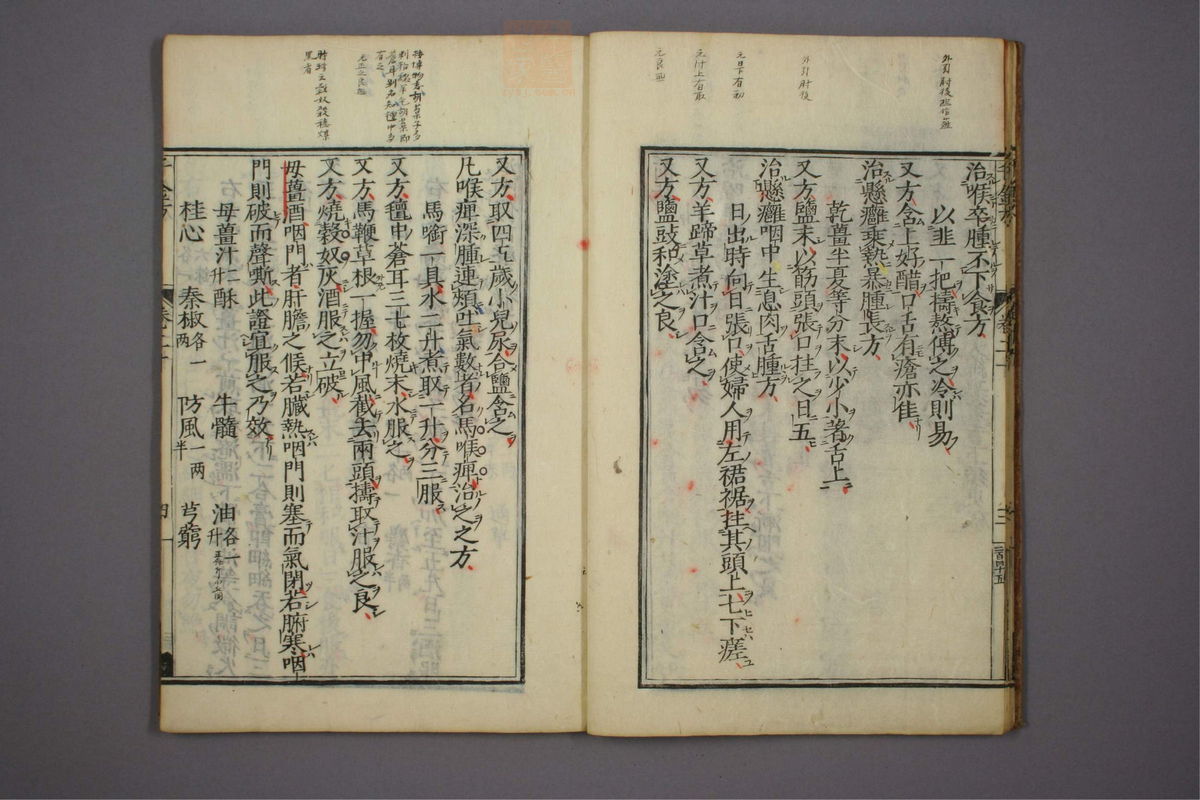 治喉卒腫不下食方
以韭一把擣熬傅之冷則易
又方含上好醋口舌有瘡亦佳
治懸癰乘熱暴腫長方
乾薑半夏等分末以少少著舌上
又方鹽末以筯頭張口拄之日五
治懸癰咽中生息肉舌腫方
日出時向日張口使婦人用左裙裾拄其頭上七下瘥
又方羊蹄草煮汁口含之
又方鹽豉和塗之良
又方取四五歲小兒尿合鹽含之
凡喉痺深腫連頰吐氣數者名馬喉痺治之之方
馬銜一具水二升煮取一升分三服
又方氊中蒼耳三七枚燒末水服之
又方馬鞭草根一握勿中風截去兩頭擣取汁服之良
又方燒穀奴灰酒服之立破
母薑酒咽門者肝膽之候若臟熱咽門則塞而氣閉若腑寒咽
門則破而聲嘶此證宜服之乃效
母薑汁二升 酥 牛髓 油各一升
桂心 秦椒各一兩 防風一兩半 芎藭